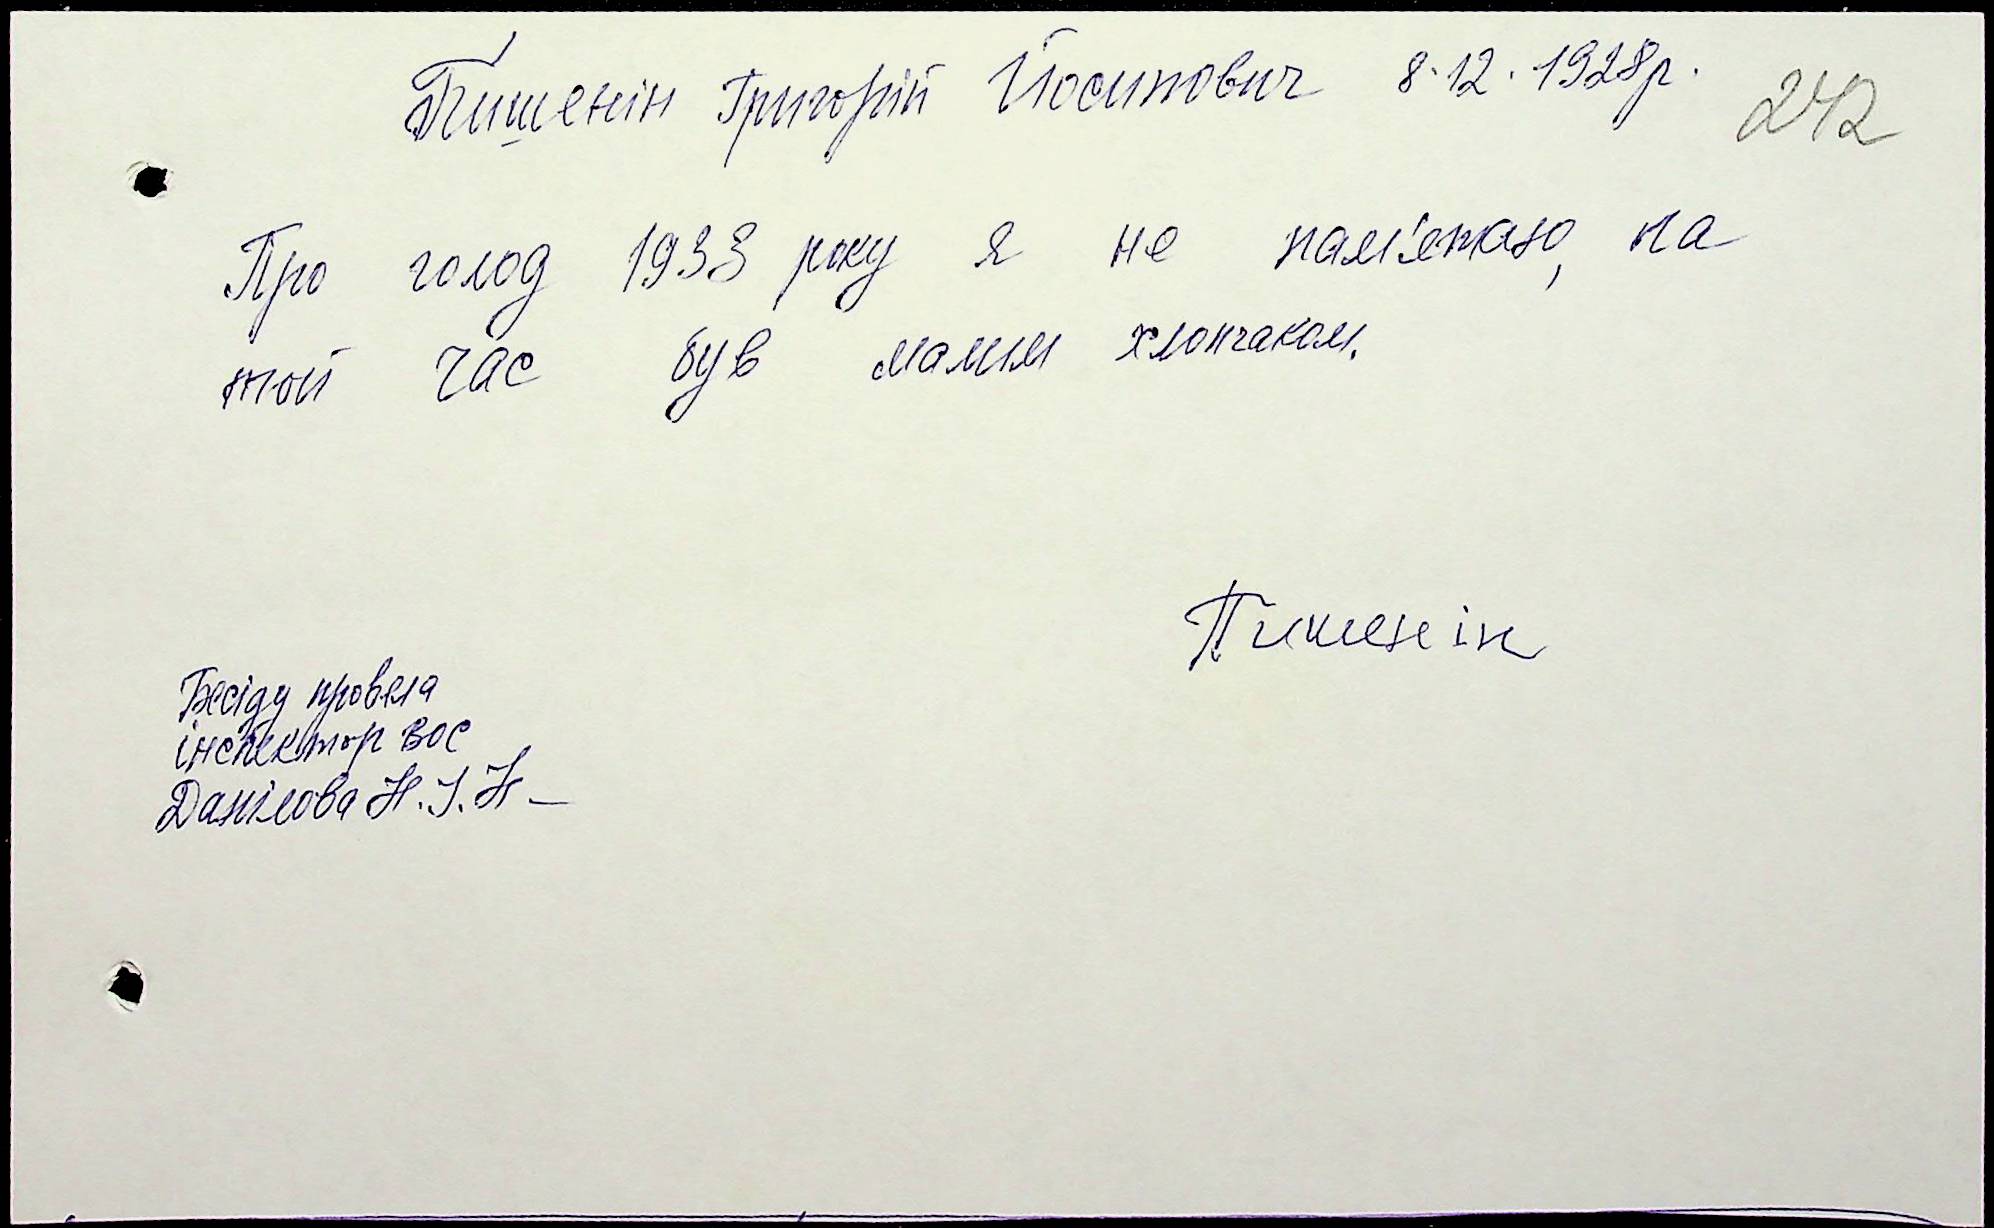 Пишенін Григорій Йосипович 8.12.1928р.
242
Про голод 1933 року я не пам'ятаю, на
той час був малим хлопчаком.
Пишенін
Бесіду провела
інспектор ВОС
Данілова Н.І.